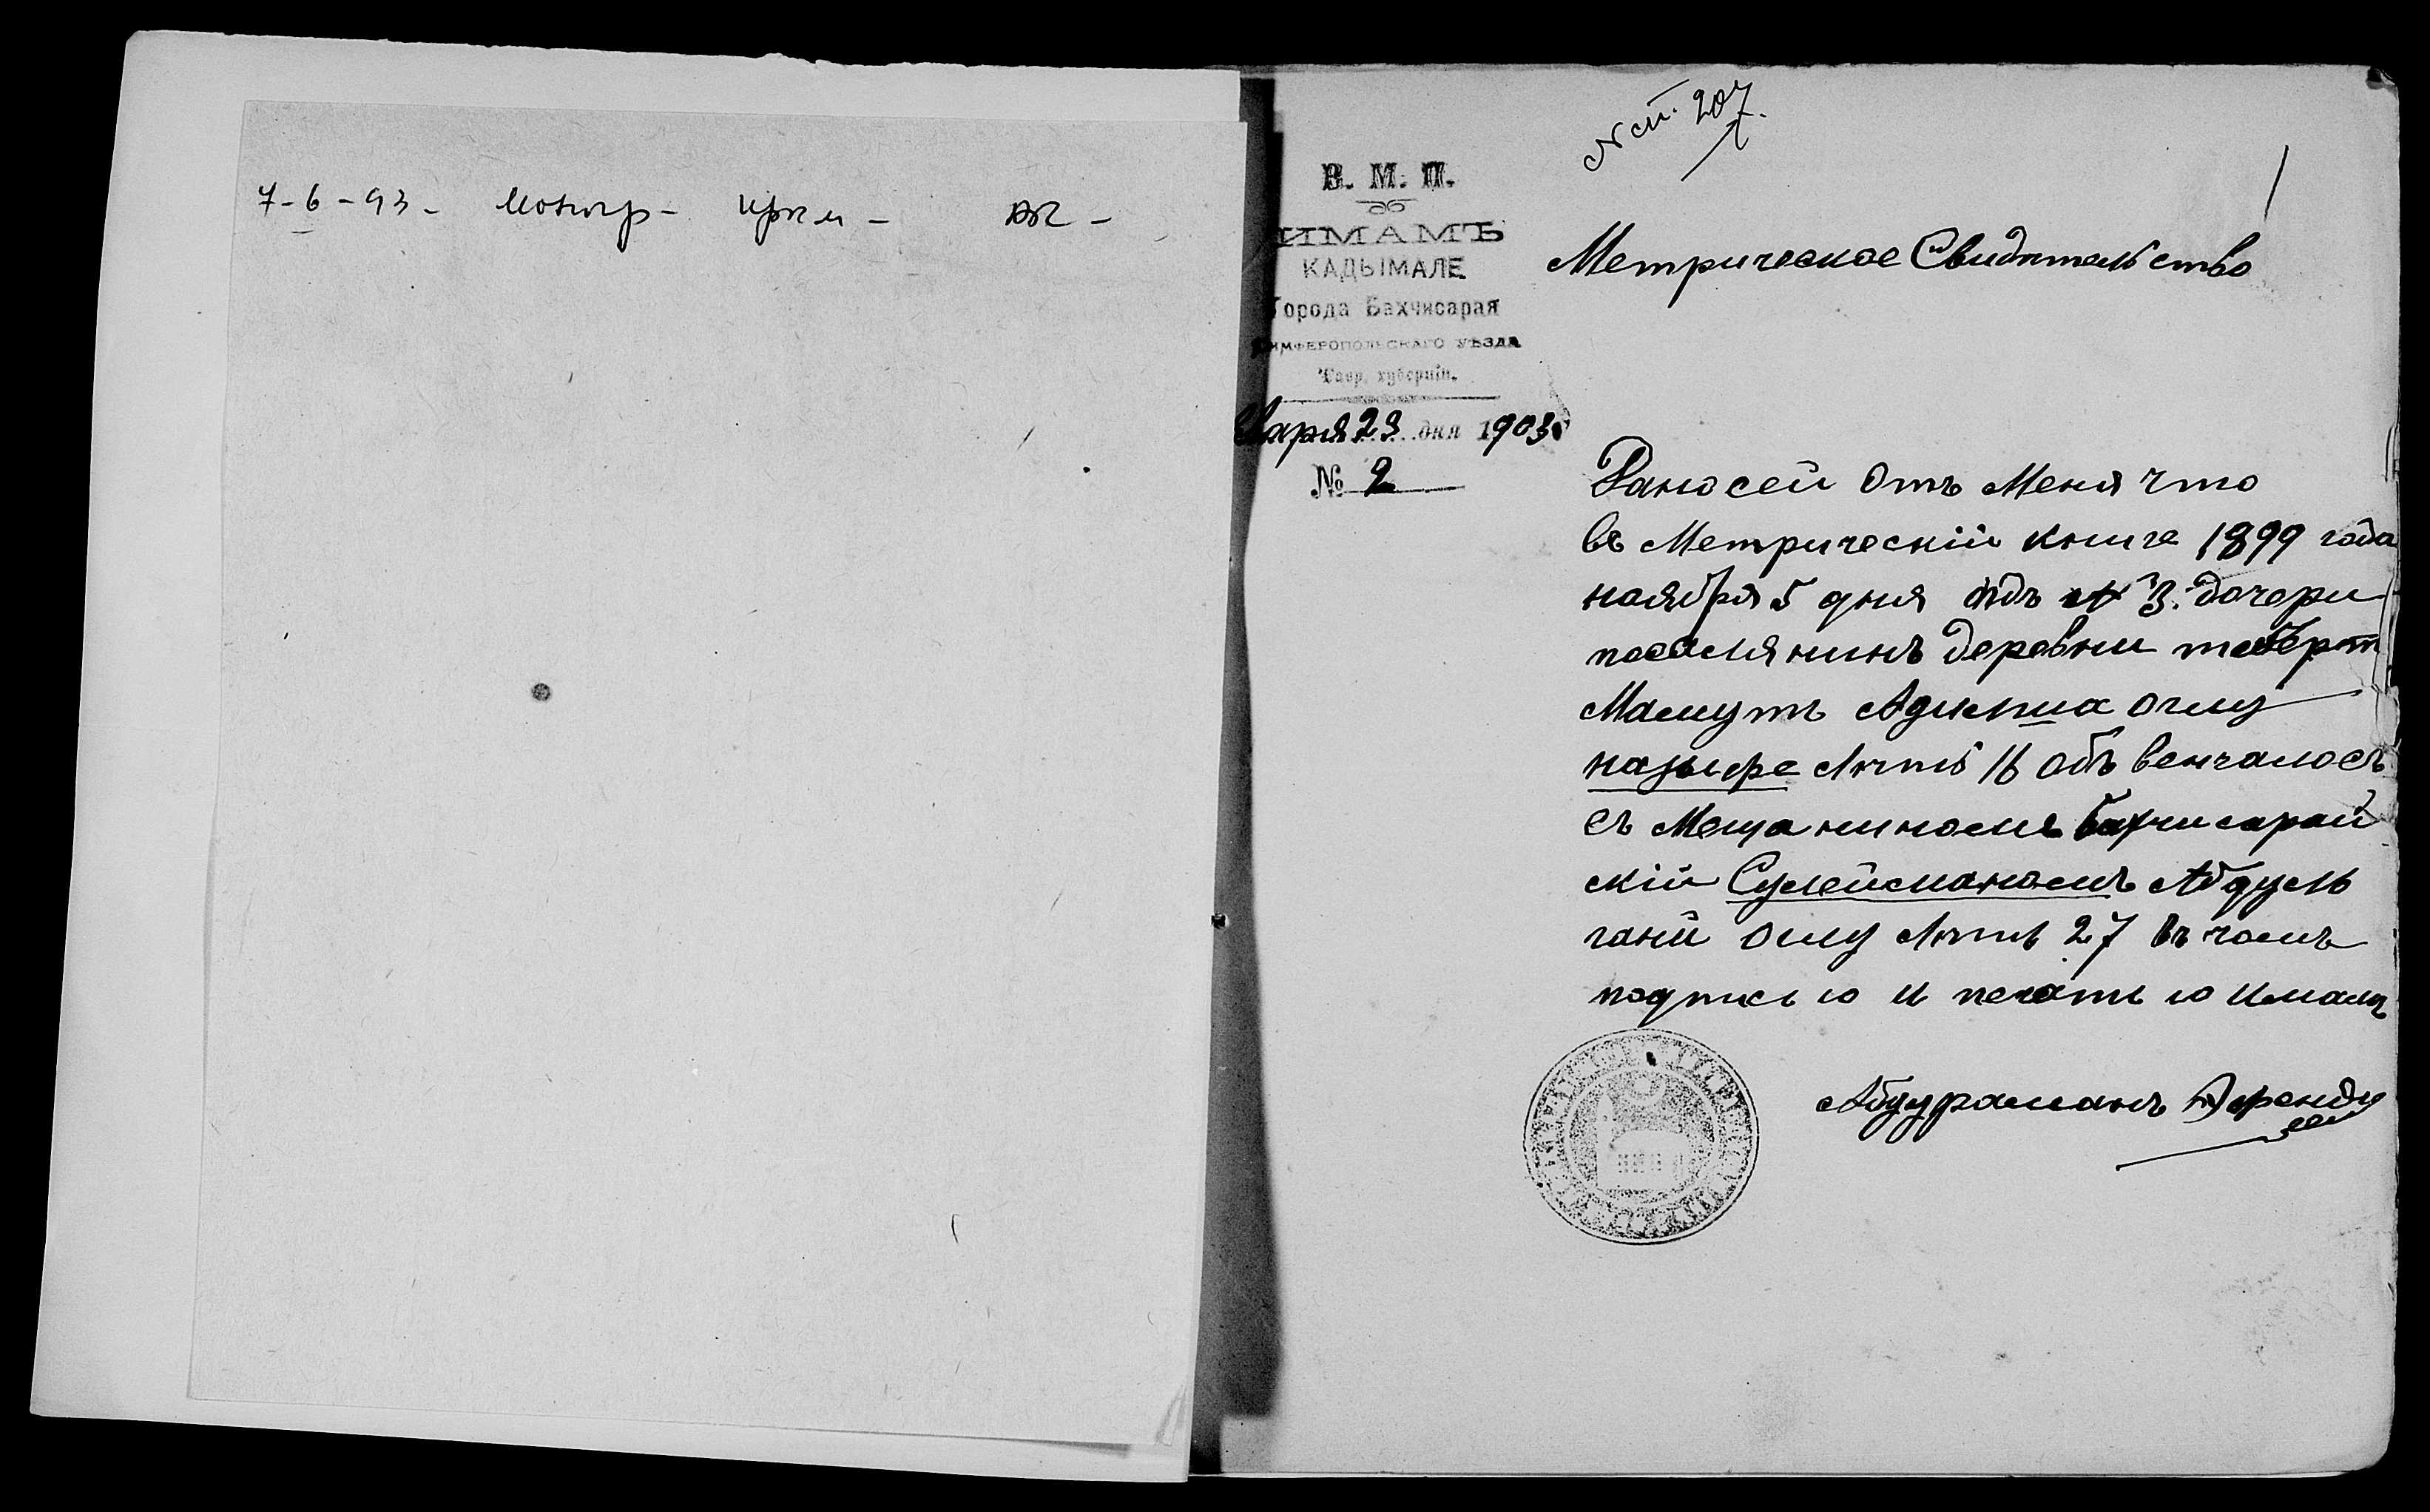 7-6-93-
N ст. 207.
В. М. П.
ИМАМЪ
КАДЫМАЛЕ
Города Бахчисарая
СИМФЕРОПОЛЬСКАГО УѢЗДА
Тавр. губерніи.
Иаря 23 дня 1903
№ 2
1
Метрическое Свидѣтельство
Дано сей Отъ Меня что
въ Метрическій книге 1899 года
ноября 5 дня подъ № 3. дочери
поселянинъ деревни
Мамутъ оглу
назыфе лѣтъ 16 объ венчалось
съ Мещаниномъ бахчисарай
скій Сулейманомъ Абдуль
гани оглу лѣтъ 27 въ чомъ
подписью и печатью Имамъ
Абдураманъ Эфенди